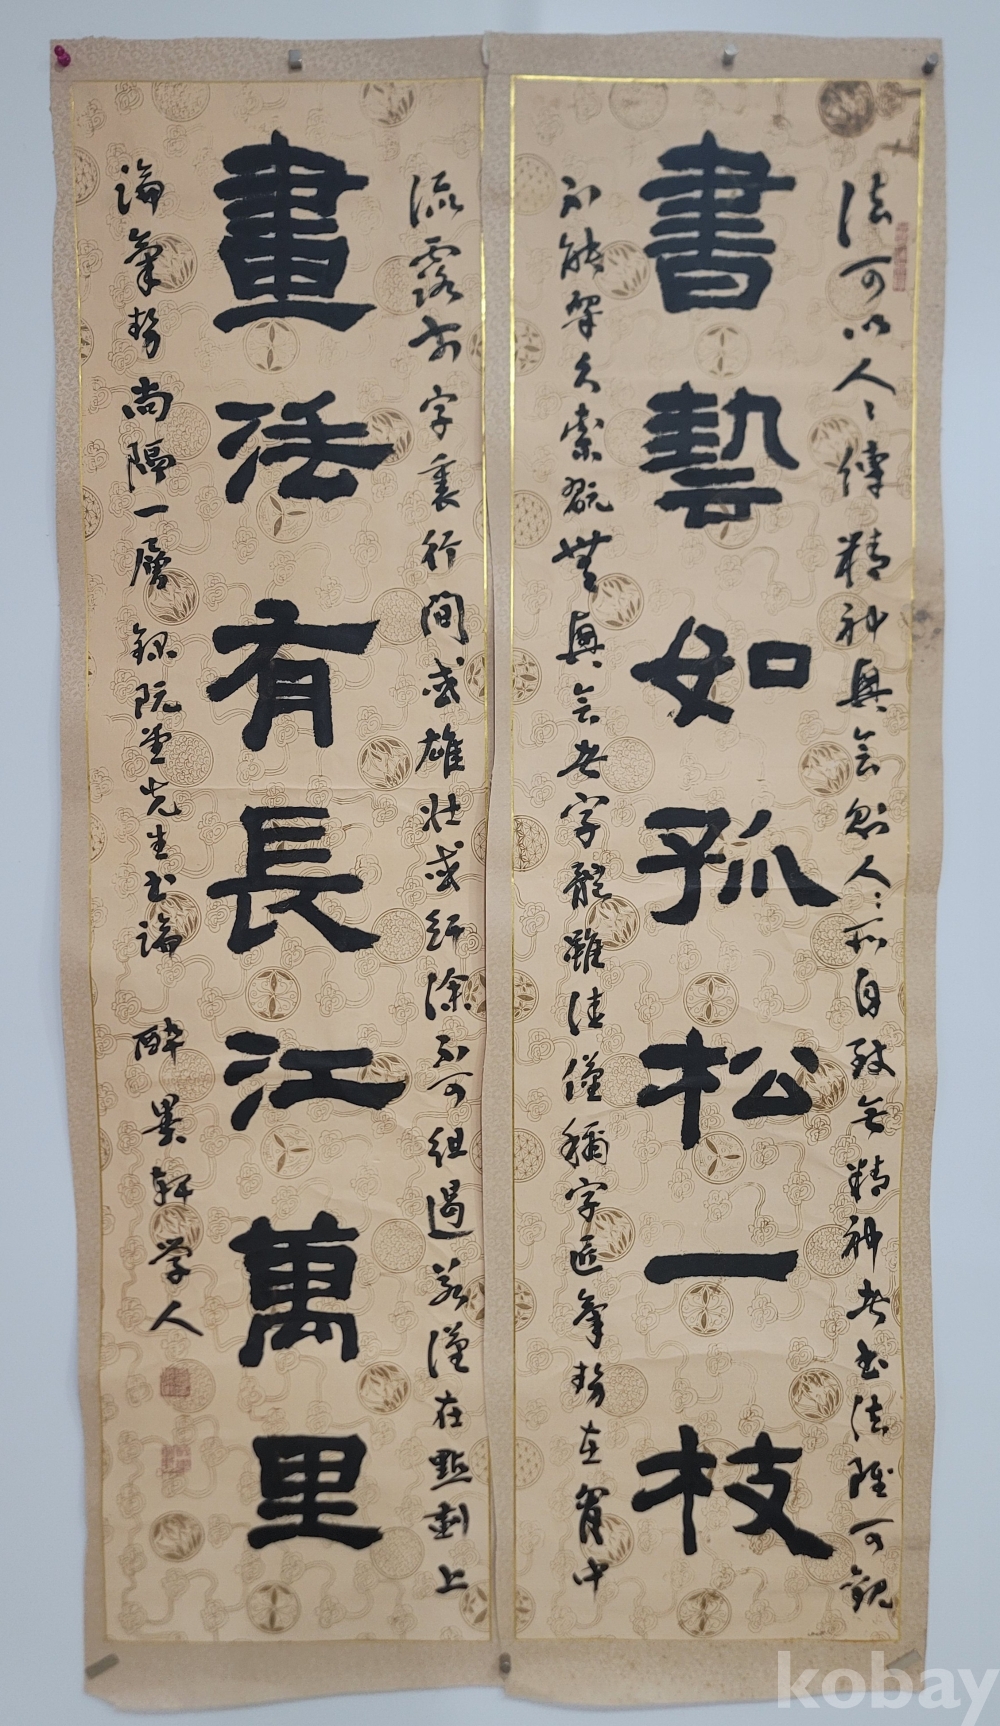 法可以人人傳精神與會則人人所自致無精神者書法雖可觀
書藝如孤松一枝
不能翫久索翫無興會者字體雖佳僅稱字匠氣勢在胸中
流露於字裏行間或雄壯或紆徐不可阻遏若僅在點劃上
畫法有長江萬里
論氣勢尚隔一層 錄阮堂先生書論 醉墨軒學人
kobay